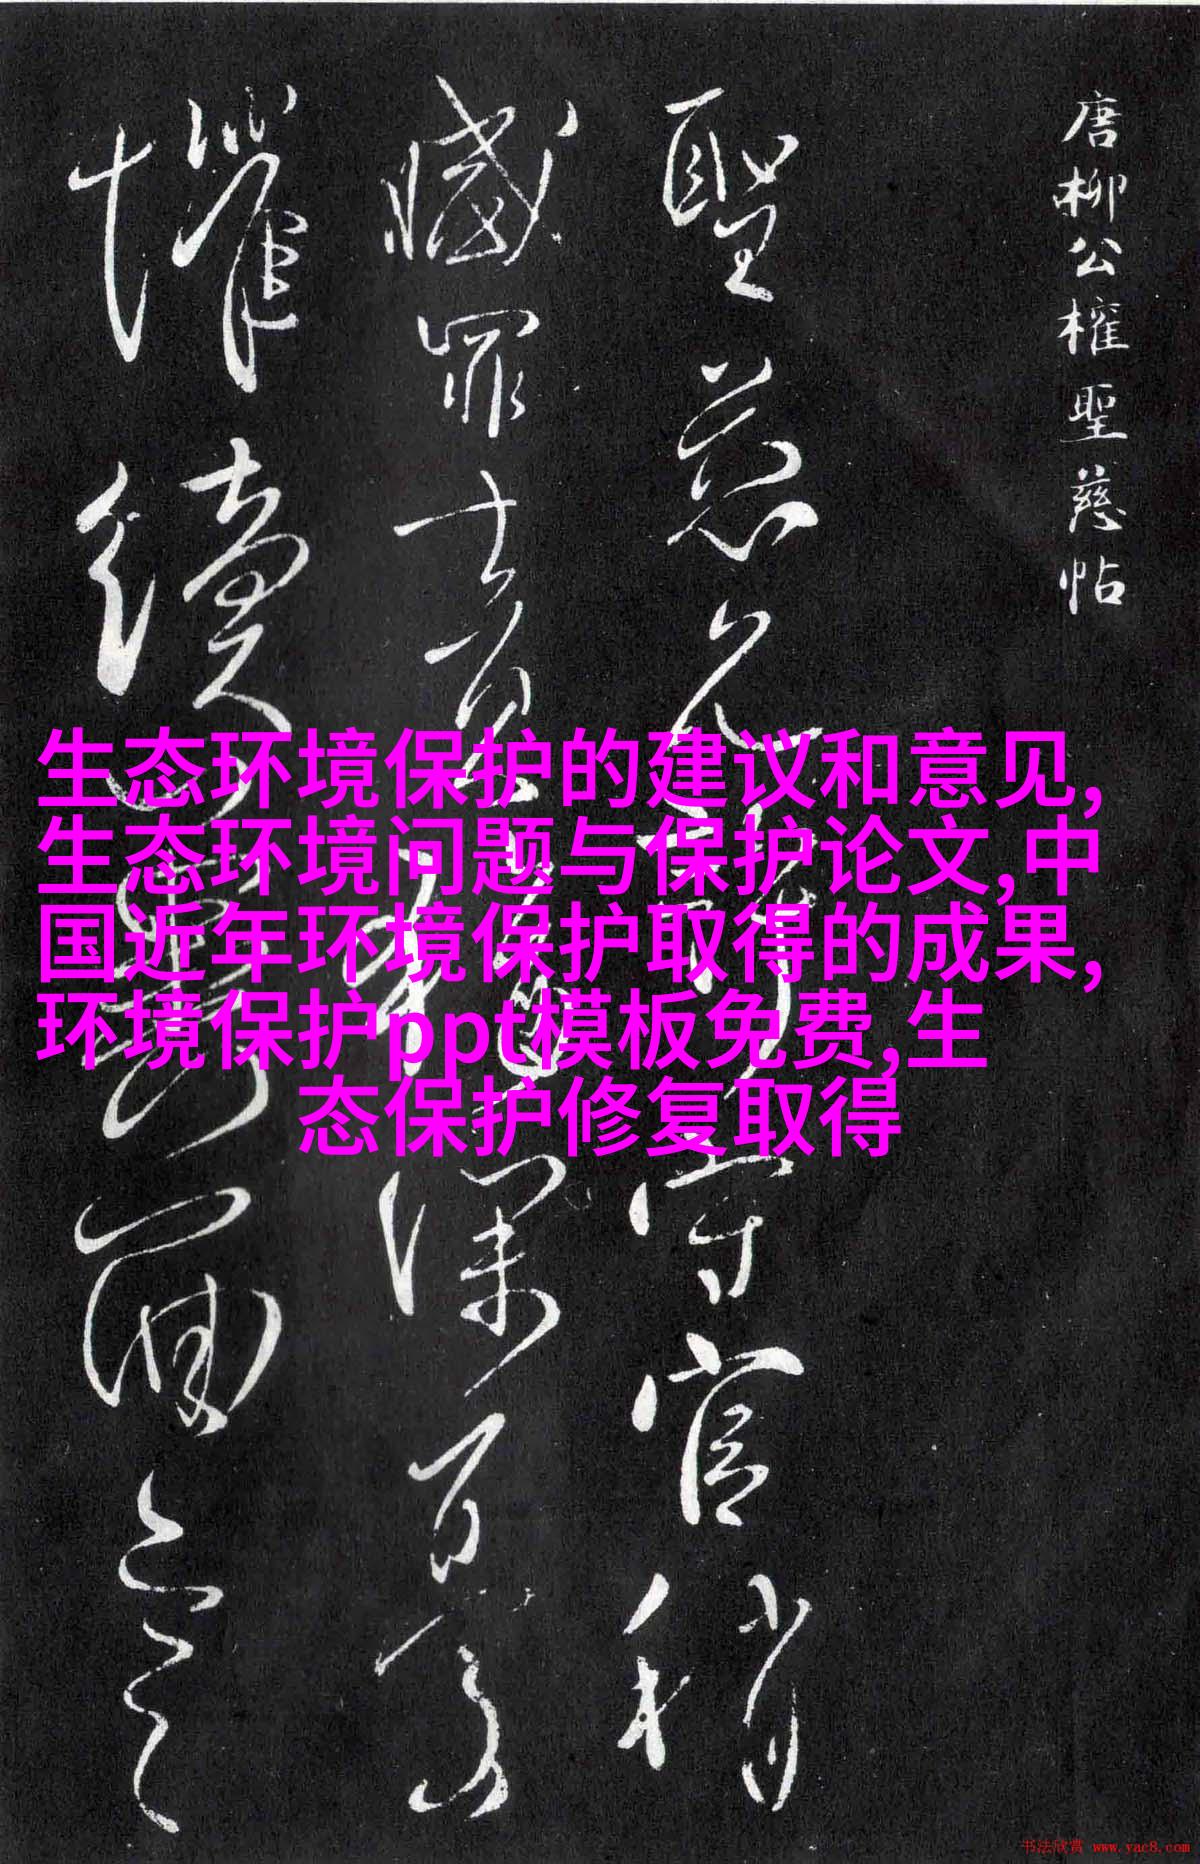 唐柳公權聖慈帖
聖慈允許守官稍
減罪責深憂
懼續面言
生态环境保护的建议和意见,
生态环境问题与保护论文,中
国近年环境保护取得的成果,
环境保护ppt模板免费,生
态保护修复取得
书法欣赏 www.yac8.com